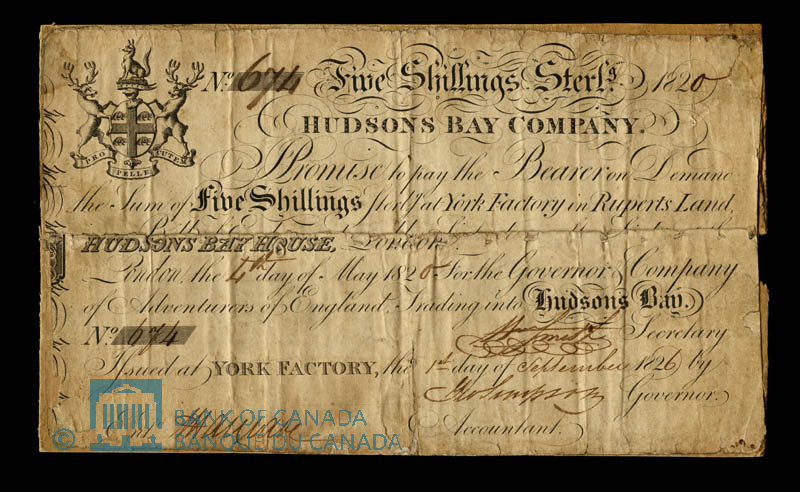 No. 674 Five Shillings Sterlg. 1820
HUDSONS BAY COMPANY.
PRO PELLE CUTEM
I Promise to pay the Bearer on Demand
the Sum of Five Shillings Sterlg. at York Factory in Ruperts Land,
HUDSONS BAY HOUSE, London.
London, the 4th day of May 1820 For the Governor & Company
of Adventurers of England, Trading into Hudsons Bay.
No. 674
Secretary
Issued at YORK FACTORY, the 1st day of September 1826 by
Geo Simpson Governor.
Entd. Hargrave Accountant.
© BANK OF CANADA
BANQUE DU CANADA